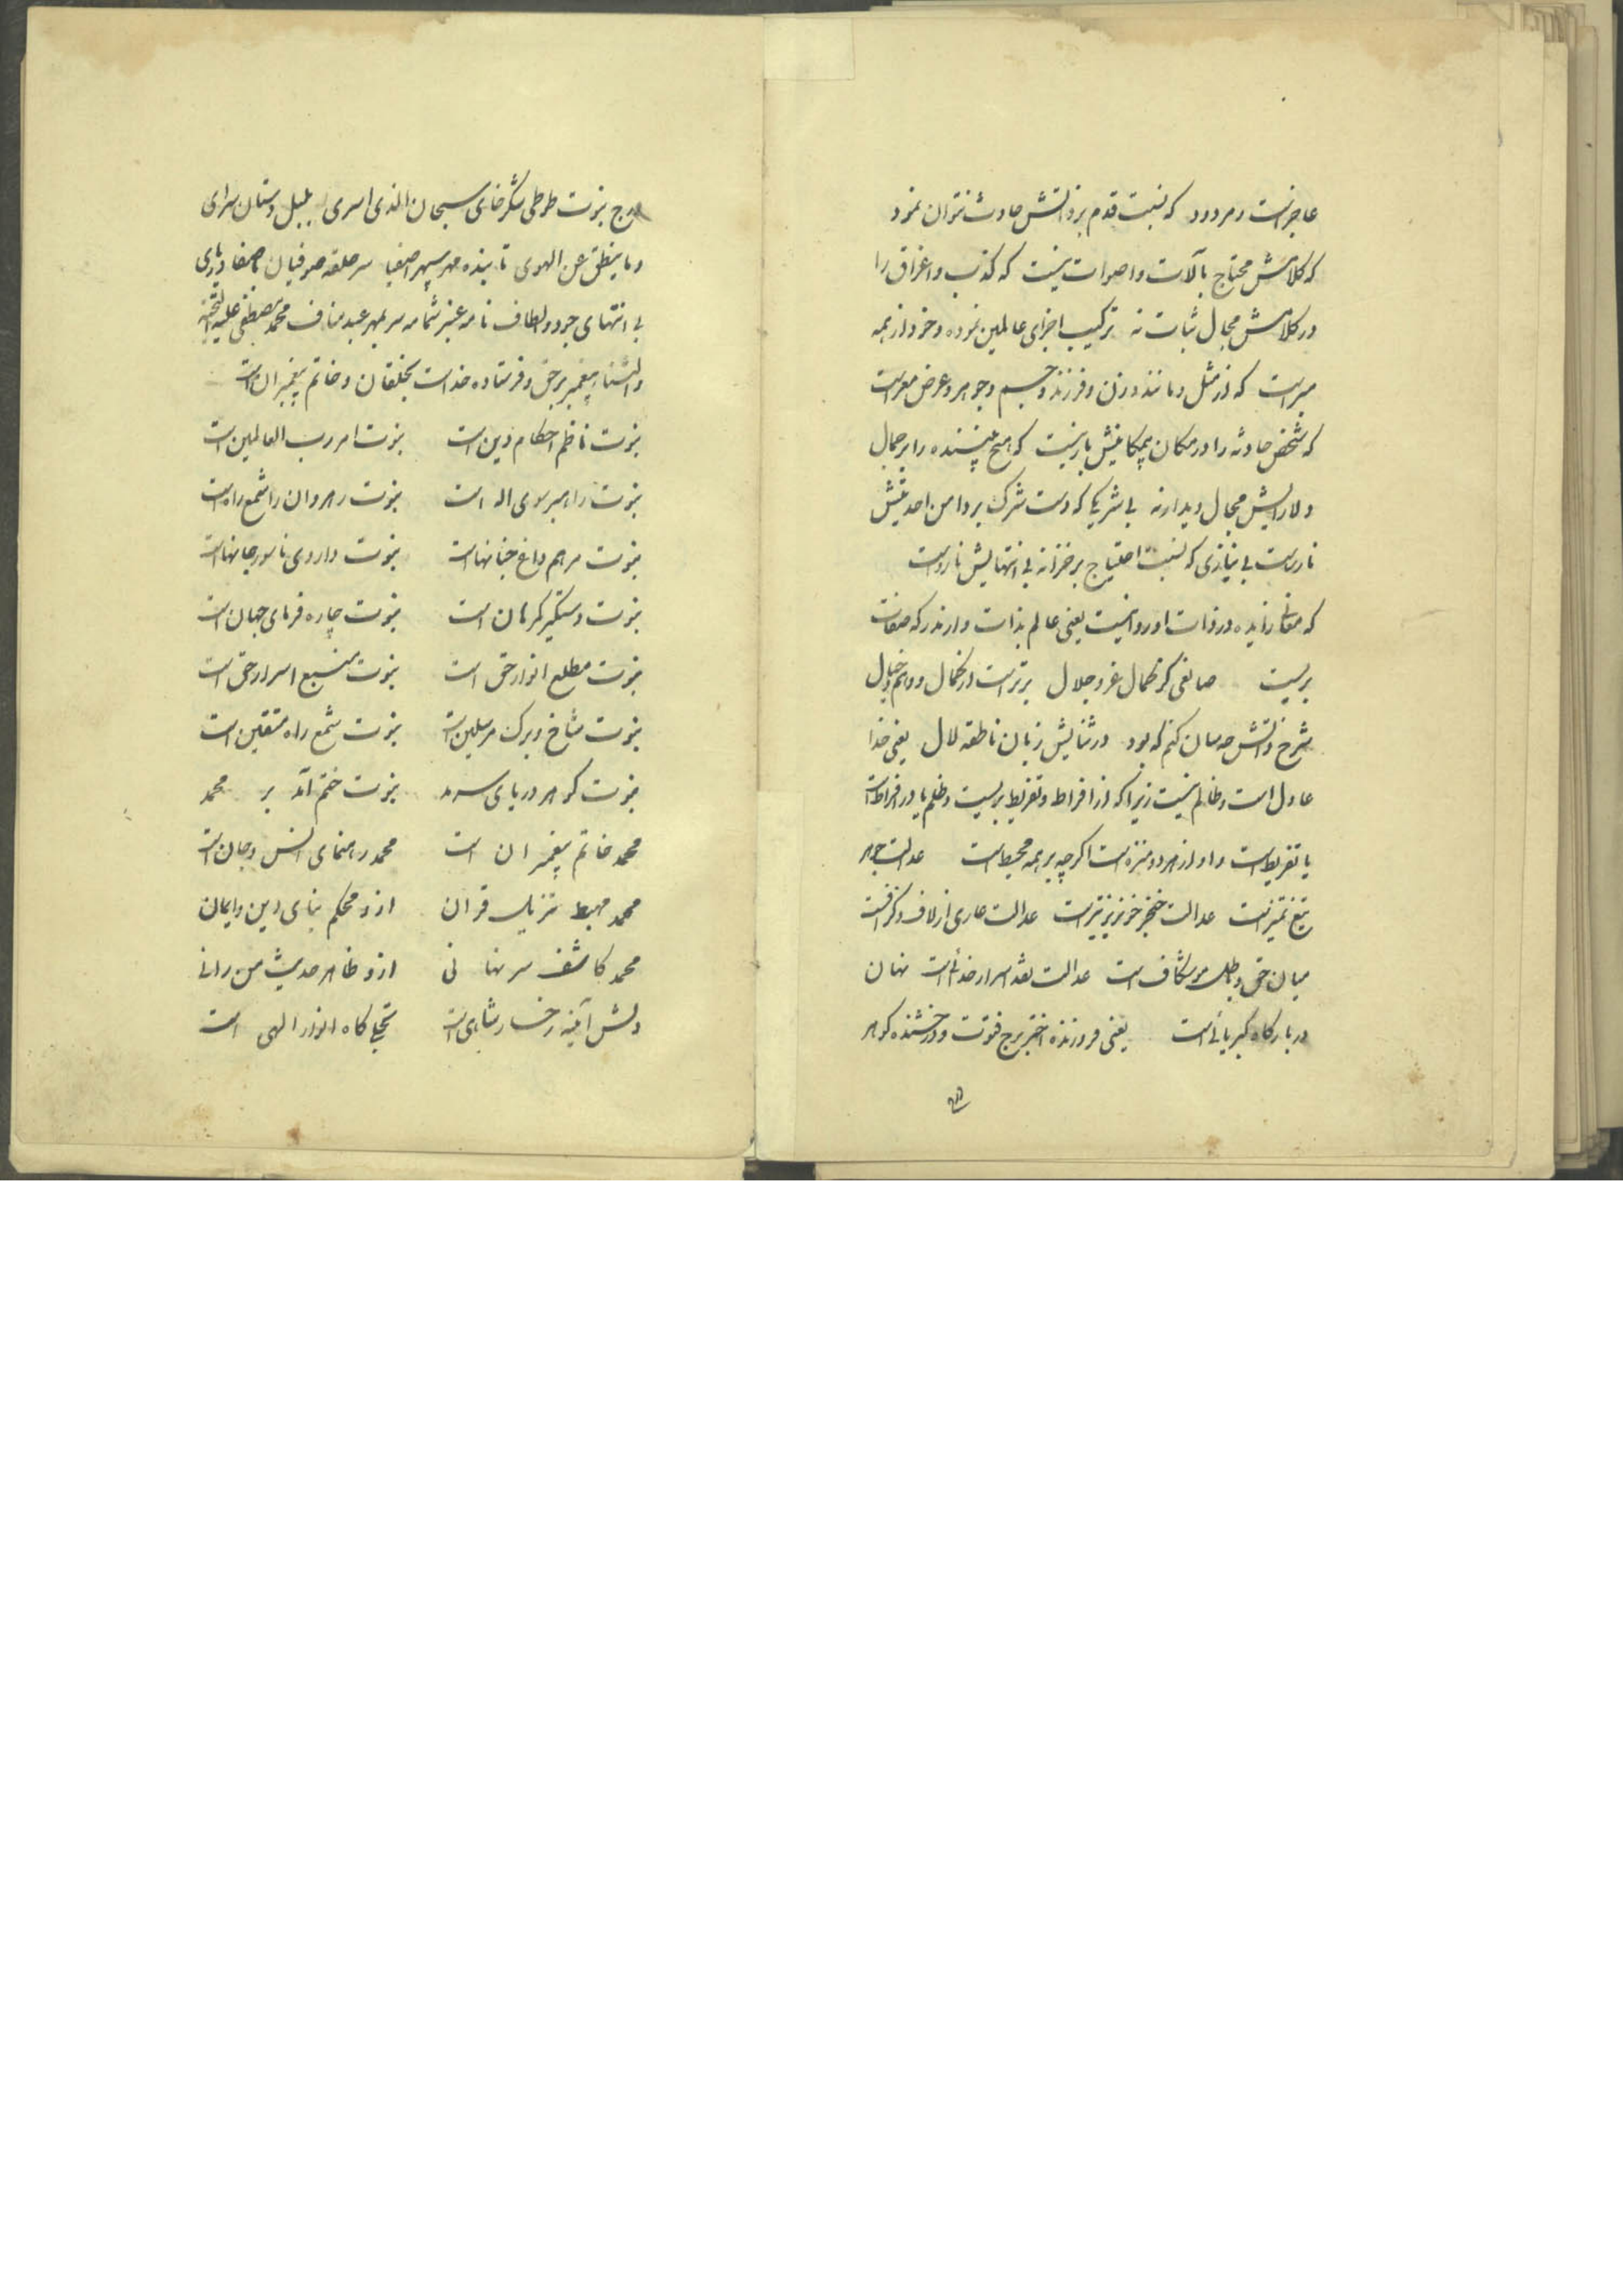 عاجز است و مردود که نسبت قدم بر ذاتش حادث نتوان نمود
که کلامش محتاج بآلات و اصوات نیست که کذب و اغراق را
در کلامش مجال ثبات نه ترکیب اجزای عالمین نموده و خود از همه
مبراست که از مثل و مانند و زن و فرزند و جسم و جوهر و عرض معراست
که شخص حادثه را در مکان بیمکانیش بار نیست که هیچ بیننده را بر جمال
دلارایش مجال دیدار نه بی شریکی که دست شرک بر دامن احدیتش
نارساست بی نیازی که نسبت احتیاج بر خزانه بی انتهایش نارواست
که معانی زایده در ذات او روا نیست یعنی عالم بذات و ارندر که صفات
بریست صانعی کز کمال عز و جلال برتر است از کمال و وهم و خیال
شرح ذاتش چه سان کنم که بود در ثنایش زبان ناطقه لال یعنی خدا
عادل است و ظالم نیست زیرا که از افراط و تفریط بریست و ظلم یا در افراط است
یا تفریط است و او از هر دو منزه است اگرچه بر همه محیط است عدالت جوهر
تیغ تمیز است عدالت خنجر خونریز تیز است عدالت عاری از لاف و گزافست
میان حق و باطل موشکاف است عدالت نقد اسرار خدائی است نهان
در بارگاه کبریائی است یعنی فروزنده اختر برج فتوت و درخشنده گوهر
درج
درج نبوت طوطی شکرخای سبحان الذی اسری بلبل دستان سرای
و ما ینطق عن الهوی تابنده مهر سپهر اصفیا سر حلقه صوفیان با صفا دریای
بی انتهای جود و الطاف نامه عنبر شمامه سر بمهر عبد مناف محمد مصطفی علیه التحیه
و الثناء پیغمبر بر حق و فرستاده خداست بخلقان و خاتم پیغمبران است
نبوت ناظم احکام دین است نبوت امر رب العالمین است
نبوت راهبر سوی اله است نبوت رهروان را شمع راه است
نبوت مرهم داغ جنانهاست نبوت داروی ناسور جانهاست
نبوت دستگیر گمرهان است نبوت چاره فرمای جهان است
نبوت مطلع انوار حق است نبوت منبع اسرار حق است
نبوت شاخ و برگ مرسلین است نبوت شمع راه متقین است
نبوت گوهر دریای سرمد نبوت ختم آمد بر محمد
محمد خاتم پیغمبران است محمد رهنمای انس و جان است
محمد مهبط تنزیل قرآن ازو محکم بنای دین و ایمان
محمد کاشف سر نهانی ازو ظاهر حدیث من رانی
دلش آئینه رخسار شاهی است تجلی گاه انوار الهی است